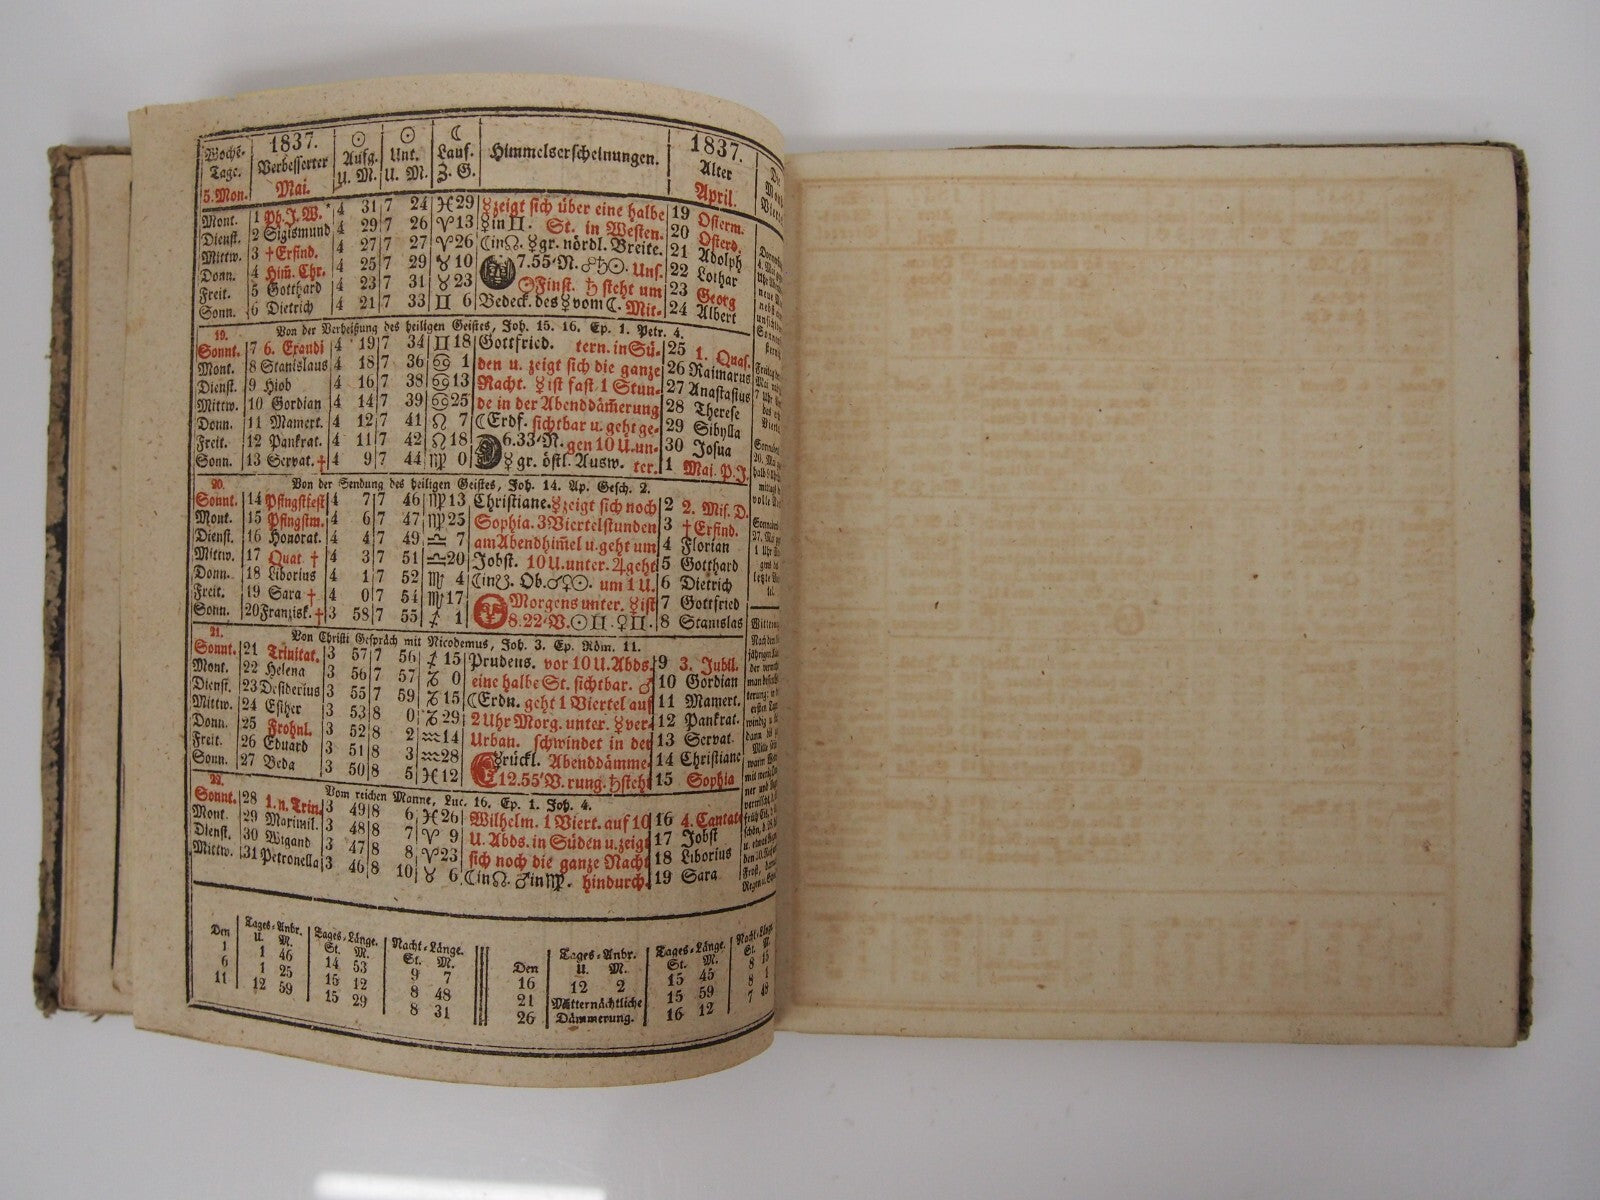 Woche-Tage. 1837. ☉ ☉ ☾ Himmelserscheinungen. 1837.
Verbesserter Aufg. Unt. Lauf. Alter
5. Mon. Mai. U. M. U. M. Z. G. April.
Mont. 1 Ph. J. W.* 4 31 7 24 ♓29 ☿zeigt sich über eine halbe 19 Osterm.
Dienst. 2 Sigismund 4 29 7 26 ♈13 ☿in♊. St. in Westen. 20 Osterd.
Mittw. 3 †Erfind. 4 27 7 27 ♈26 ☾in☊. ☿gr. nördl. Breite. 21 Adolph
Donn. 4 Him̄. Chr. 4 25 7 29 ♉10 7.55′N. ☌♄☉. Uns. 22 Lothar
Freit. 5 Gotthard 4 23 7 31 ♉23 ☉Finst. ♄ steht um 23 Georg
Sonn. 6 Dietrich 4 21 7 33 ♊ 6 Bedeck. des☿vom☾. Mit- 24 Albert
19. Von der Verheißung des heiligen Geistes, Joh. 15. 16. Ep. 1. Petr. 4.
Sonnt. 7 6. Exaudi 4 19 7 34 ♊18 Gottfried. tern. in Sü- 25 1. Quas.
Mont. 8 Stanislaus 4 18 7 36 ♋ 1 den u. zeigt sich die ganze 26 Raimarus
Dienst. 9 Hiob 4 16 7 38 ♋13 Nacht. ☿ist fast 1 Stun- 27 Anastasius
Mittw. 10 Gordian 4 14 7 39 ♋25 de in der Abenddäm̄erung 28 Therese
Donn. 11 Mamert. 4 12 7 41 ♌ 7 ☾Erdf. sichtbar u. geht ge- 29 Sibylla
Freit. 12 Pankrat. 4 11 7 42 ♌18 6.33′N. gen 10 U. un- 30 Josua
Sonn. 13 Servat. † 4 9 7 44 ♍ 0 ☿ gr. östl. Ausw. ter. 1 Mai. P. J.
20. Von der Sendung des heiligen Geistes, Joh. 14. Ap. Gesch. 2.
Sonnt. 14 Pfingstfest 4 7 7 46 ♍13 Christiane. ☿zeigt sich noch 2 2. Mis. D.
Mont. 15 Pfingstm. 4 6 7 47 ♍25 Sophia. 3 Viertelstunden 3 †Erfind.
Dienst. 16 Honorat. 4 4 7 49 ♎ 7 am Abendhim̄el u. geht um 4 Florian
Mittw. 17 Quat. † 4 3 7 51 ♎20 Jobst. 10 U. unter. ♃geht 5 Gotthard
Donn. 18 Liborius 4 1 7 52 ♏ 4 ☾in☋. Ob.☌♀☉. um 1 U. 6 Dietrich
Freit. 19 Sara † 4 0 7 54 ♏17 Morgens unter. ☿ist 7 Gottfried
Sonn. 20 Franzisk. † 3 58 7 55 ♐ 1 8.22′V. ☉♊. ♀♊. 8 Stanislas
21. Von Christi Gespräch mit Nicodemus, Joh. 3. Ep. Röm. 11.
Sonnt. 21 Trinitat. 3 57 7 56 ♐15 Prudens. vor 10 U. Abds. 9 3. Jubil.
Mont. 22 Helena 3 56 7 57 ♑ 0 eine halbe St. sichtbar. ♂ 10 Gordian
Dienst. 23 Desiderius 3 55 7 59 ♑15 ☾Erdn. geht 1 Viertel auf 11 Mamert.
Mittw. 24 Esther 3 53 8 0 ♑29 2 Uhr Morg. unter. ☿ver- 12 Pankrat.
Donn. 25 Frohnl. 3 52 8 2 ♒14 Urban. schwindet in der 13 Servat.
Freit. 26 Eduard 3 51 8 3 ♒28 ☿rückl. Abenddämme- 14 Christiane
Sonn. 27 Beda 3 50 8 5 ♓12 12.55′V. rung. ♄steht 15 Sophia
22. Vom reichen Manne, Luc. 16. Ep. 1. Joh. 4.
Sonnt. 28 1. n. Trin. 3 49 8 6 ♓26 Wilhelm. 1 Viert. auf 10 16 4. Cantate
Mont. 29 Maximil. 3 48 8 7 ♈ 9 U. Abds. in Süden u. zeigt 17 Jobst
Dienst. 30 Wigand 3 47 8 8 ♈23 sich noch die ganze Nacht 18 Liborius
Mittw. 31 Petronella 3 46 8 10 ♉ 6 ☾in☊. ♂in♍. hindurch. 19 Sara
Den Tages-Anbr. Tages-Länge. Nacht-Länge.
U. M. St. M. St. M.
1 1 46 14 53 9 7
6 1 25 15 12 8 48
11 12 59 15 29 8 31
Den Tages-Anbr. Tages-Länge. Nacht-Länge
U. M. St. M. St. M.
16 12 2 15 45 8 15
21 Mitternächtliche 15 59 8 1
26 Dämmerung. 16 12 7 48